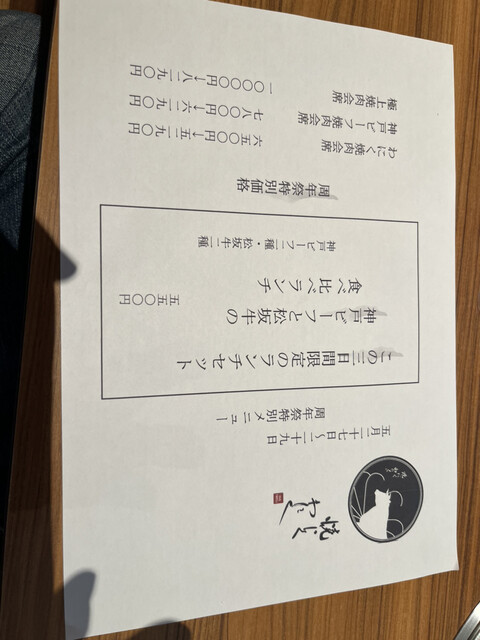 五月二十七日～二十九日
周年祭特別メニュー
この三日間限定のランチセット
神戸ビーフと松坂牛の
食べ比べランチ
五五〇〇円
神戸ビーフ二種・松坂牛二種
周年祭特別価格
わにく焼肉会席
六五〇〇円→五二九〇円
神戸ビーフ焼肉会席
七八〇〇円→六二九〇円
極上焼肉会席
一〇〇〇〇円→八二九〇円